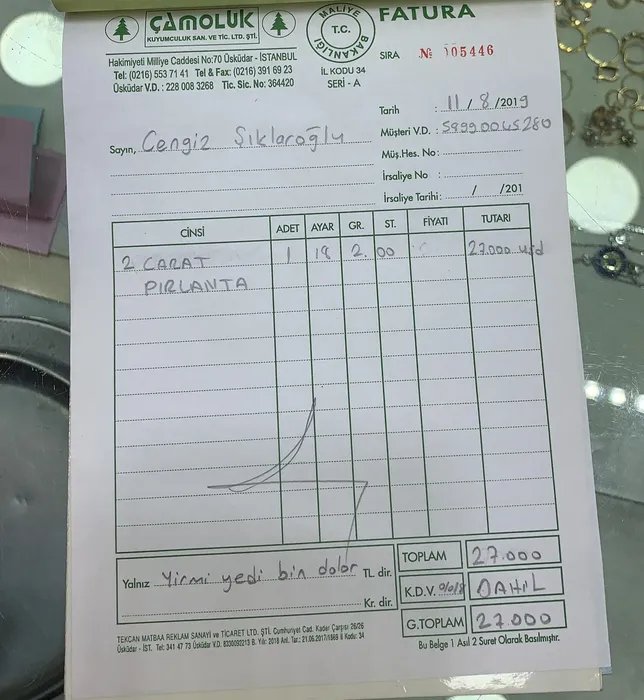 ÇAMOLUK
KUYUMCULUK SAN. VE TİC. LTD. ŞTİ.
Hakimiyeti Milliye Caddesi No:70 Üsküdar - İSTANBUL
Tel: (0216) 553 71 41 Tel & Fax: (0216) 391 69 23
Üsküdar V.D. : 228 008 3268 Tic. Sic. No: 364420
MALİYE BAKANLIĞI
T.C.
İL KODU 34
SERİ - A
FATURA
SIRA № 105446
Tarih : 11 / 8 /2019
Müşteri V.D. : 59990045280
Müş.Hes. No :
İrsaliye No :
İrsaliye Tarihi: / /201
Sayın, Cengiz Şıklaroğlu
CİNSİ ADET AYAR GR. ST. FİYATI TUTARI
2 CARAT 1 18 2. 00 27.000 usd
PIRLANTA
Yalnız Yirmi yedi bin dolar TL dir.
Kr. dir.
TOPLAM 27.000
K.D.V. %18 DAHİL
G.TOPLAM 27.000
TEKCAN MATBAA REKLAM SANAYİ ve TİCARET LTD. ŞTİ. Cumhuriyet Cad. Kader Çarşısı 26/26
Üsküdar - İST. Tel: 341 47 73 Üsküdar V.D. 8330092213 B. Yılı: 2018 Anl. Tar.: 21.06.2017/1869 İl Kodu: 34
Bu Belge 1 Asıl 2 Suret Olarak Basılmıştır.